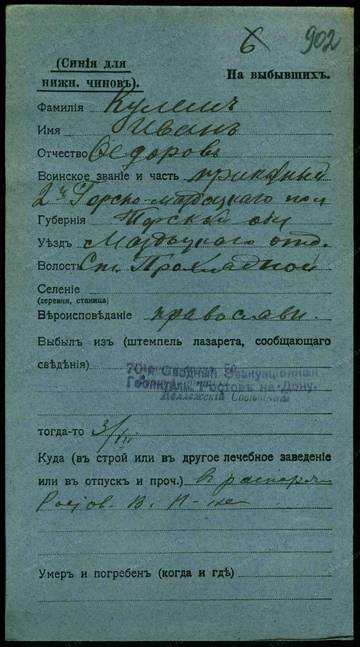 6 902
(Синія для
нижн. чиновъ).
На выбывшихъ.
Фамилія Кулешъ
Имя Иванъ
Отчество Ѳедоровъ
Воинское званіе и часть приказный
2й Горско-Моздоцкаго пол
Губернія Терской обл
Уѣздъ Моздоцкаго отд.
Волость Ст. Прохладной
Селеніе
(деревня, станица)
Вѣроисповѣданіе православн.
Выбылъ изъ (штемпель лазарета, сообщающаго
свѣдѣнія)
70 Сводная Эвакуаціонная
Ростовъ на-Дону.
тогда-то 3/VII
Куда (въ строй или въ другое лечебное заведеніе
или въ отпускъ и проч.) В распоря
Ростов. В. Н-ка
Умеръ и погребенъ (когда и гдѣ)